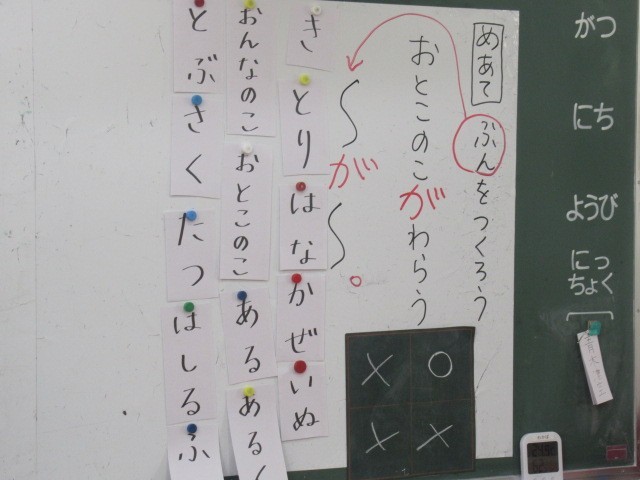 がつ
にち
ようび
にっ
ちょく
めあて
ぶんをつくろう
おとこのこがわらう
〜が〜。
き
とり
はな
かぜ
いぬ
おんなのこ
おとこのこ
ある
あるく
とぶ
さく
たつ
はしる
ふ